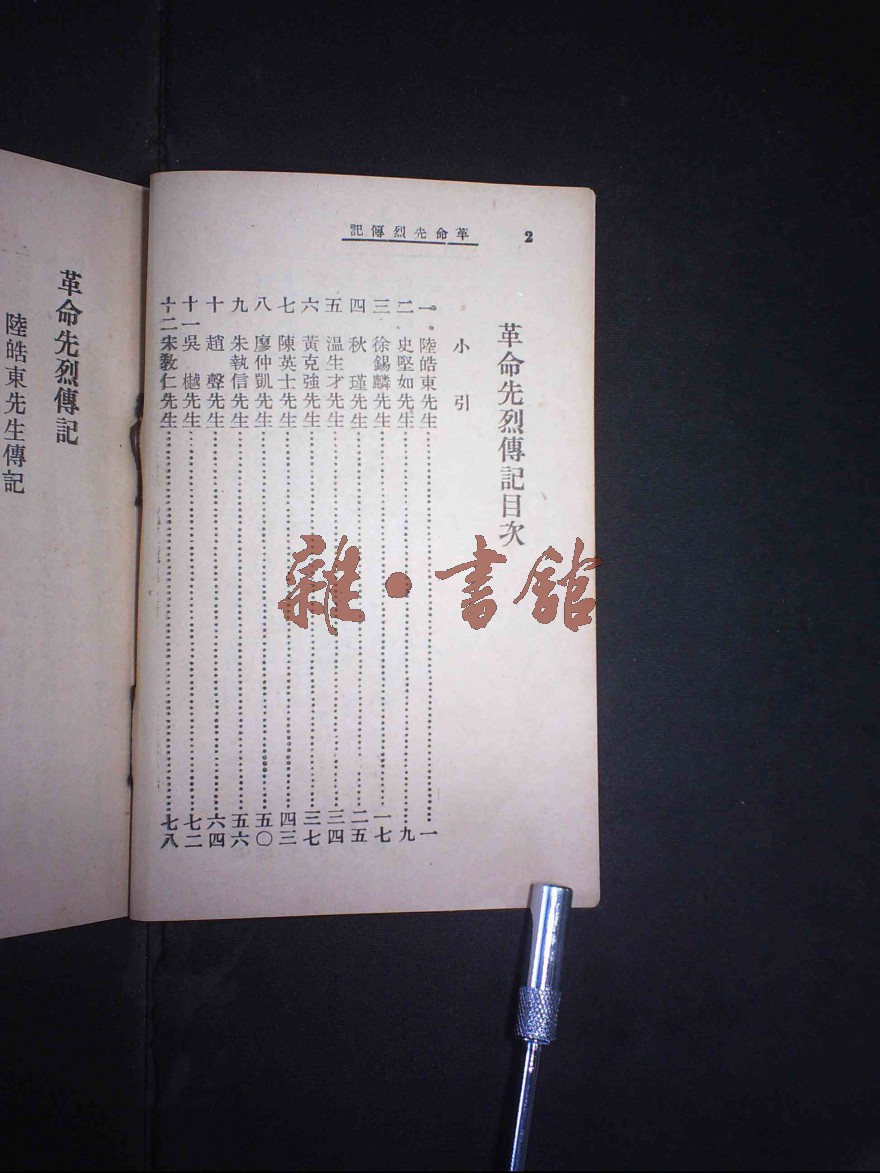 革命先烈傳記
2
革命先烈傳記目次
小引
一. 陸皓東先生……一
二. 史堅如先生……九
三 徐錫麟先生……一七
四 秋瑾先生……二五
五 溫生才先生……三四
六 黃克強先生……三七
七 陳英士先生……四三
八 廖仲凱先生……五〇
九 朱執信先生……五六
十 趙聲先生……六四
十一 吳樾先生……七二
十二 宋敎仁先生……七八
革命先烈傳記
陸皓東先生傳記
雜·書館